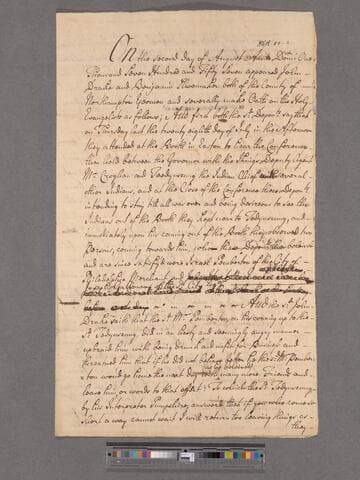 On the second day of August Domi One
Thousand Seven Hundred and Fifty Seven appeared John
Drake and Benjamin Shoemaker both of the County of
Northampton Yeomen and severally make Oath on the Holy
Evangelists as follows; And first both the Depon'ts say that
on Thursday last the twenty eighth day of July in the Afternoon
they attended at the Booth in Easton to hear the Conference
then held between the Governor with the Kings Deputy Agent
Mr. Croghan and Teedyuscung the Indian Chief with several
other Indians, and at the Close of the Conference these Depon'ts
intending to stay till all was over and being desirous to see the
Indians out of the Booth they kept near to Teedyuscung, and
immediately upon his coming out of the Booth they observed two
Persons, coming towards him, whom these Deponents believed
and are since satisfied were Israel Pemberton of the City of
Philadelphia Merchant and
And the s'd John
Drake saith that the s'd Mr. Pemberton, on his coming up to the
s'd Teedyuscung, did in an hasty and seemingly angry manner
upbraid him with being drunk and unfit for Business and
threatened him that if he did not behave better he the s'd Mr. Pember-
ton would go home the next day with many more Friends and
leave him, or words to that effect; To which the s'd Teedyuscung
by his Interpreter Pumpshire, answered that if you who come so
short a way cannot wait I will return too leaving things as
they